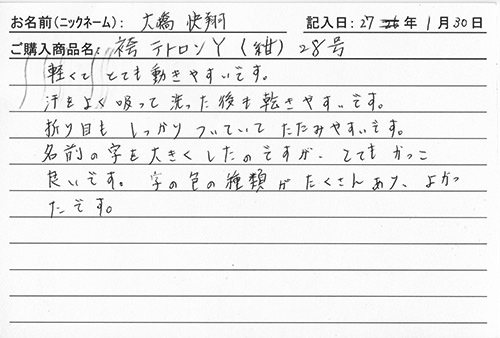 お名前(ニックネーム): 大橋 快翔 記入日: 27 年 1月 30日
ご購入商品名: 袴 テトロンY (紺) 28号
軽くて とても動きやすいです。
汗をよく吸って洗った後も乾きやすいです。
折り目も しっかり ついていて たたみやすいです。
名前の字を大きくしたのですが、とても かっこ
良いです。字の色の種類が たくさんあり、よかっ
たです。